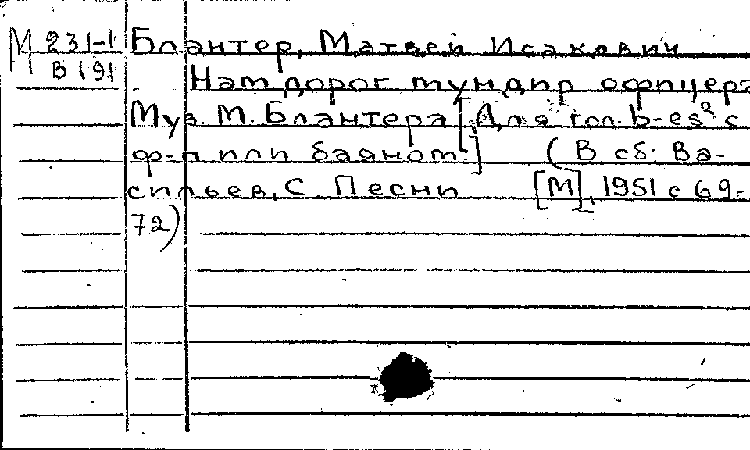 М 231-1 Блантер, Матвей Исакович
В 191 Нам дорог мундир офицера
Муз. М. Блантера [Для гол. b-es² с
ф-п или баяном.] (В сб: Ва-
сильев, С. Песни [М], 1951 с 69-
72)